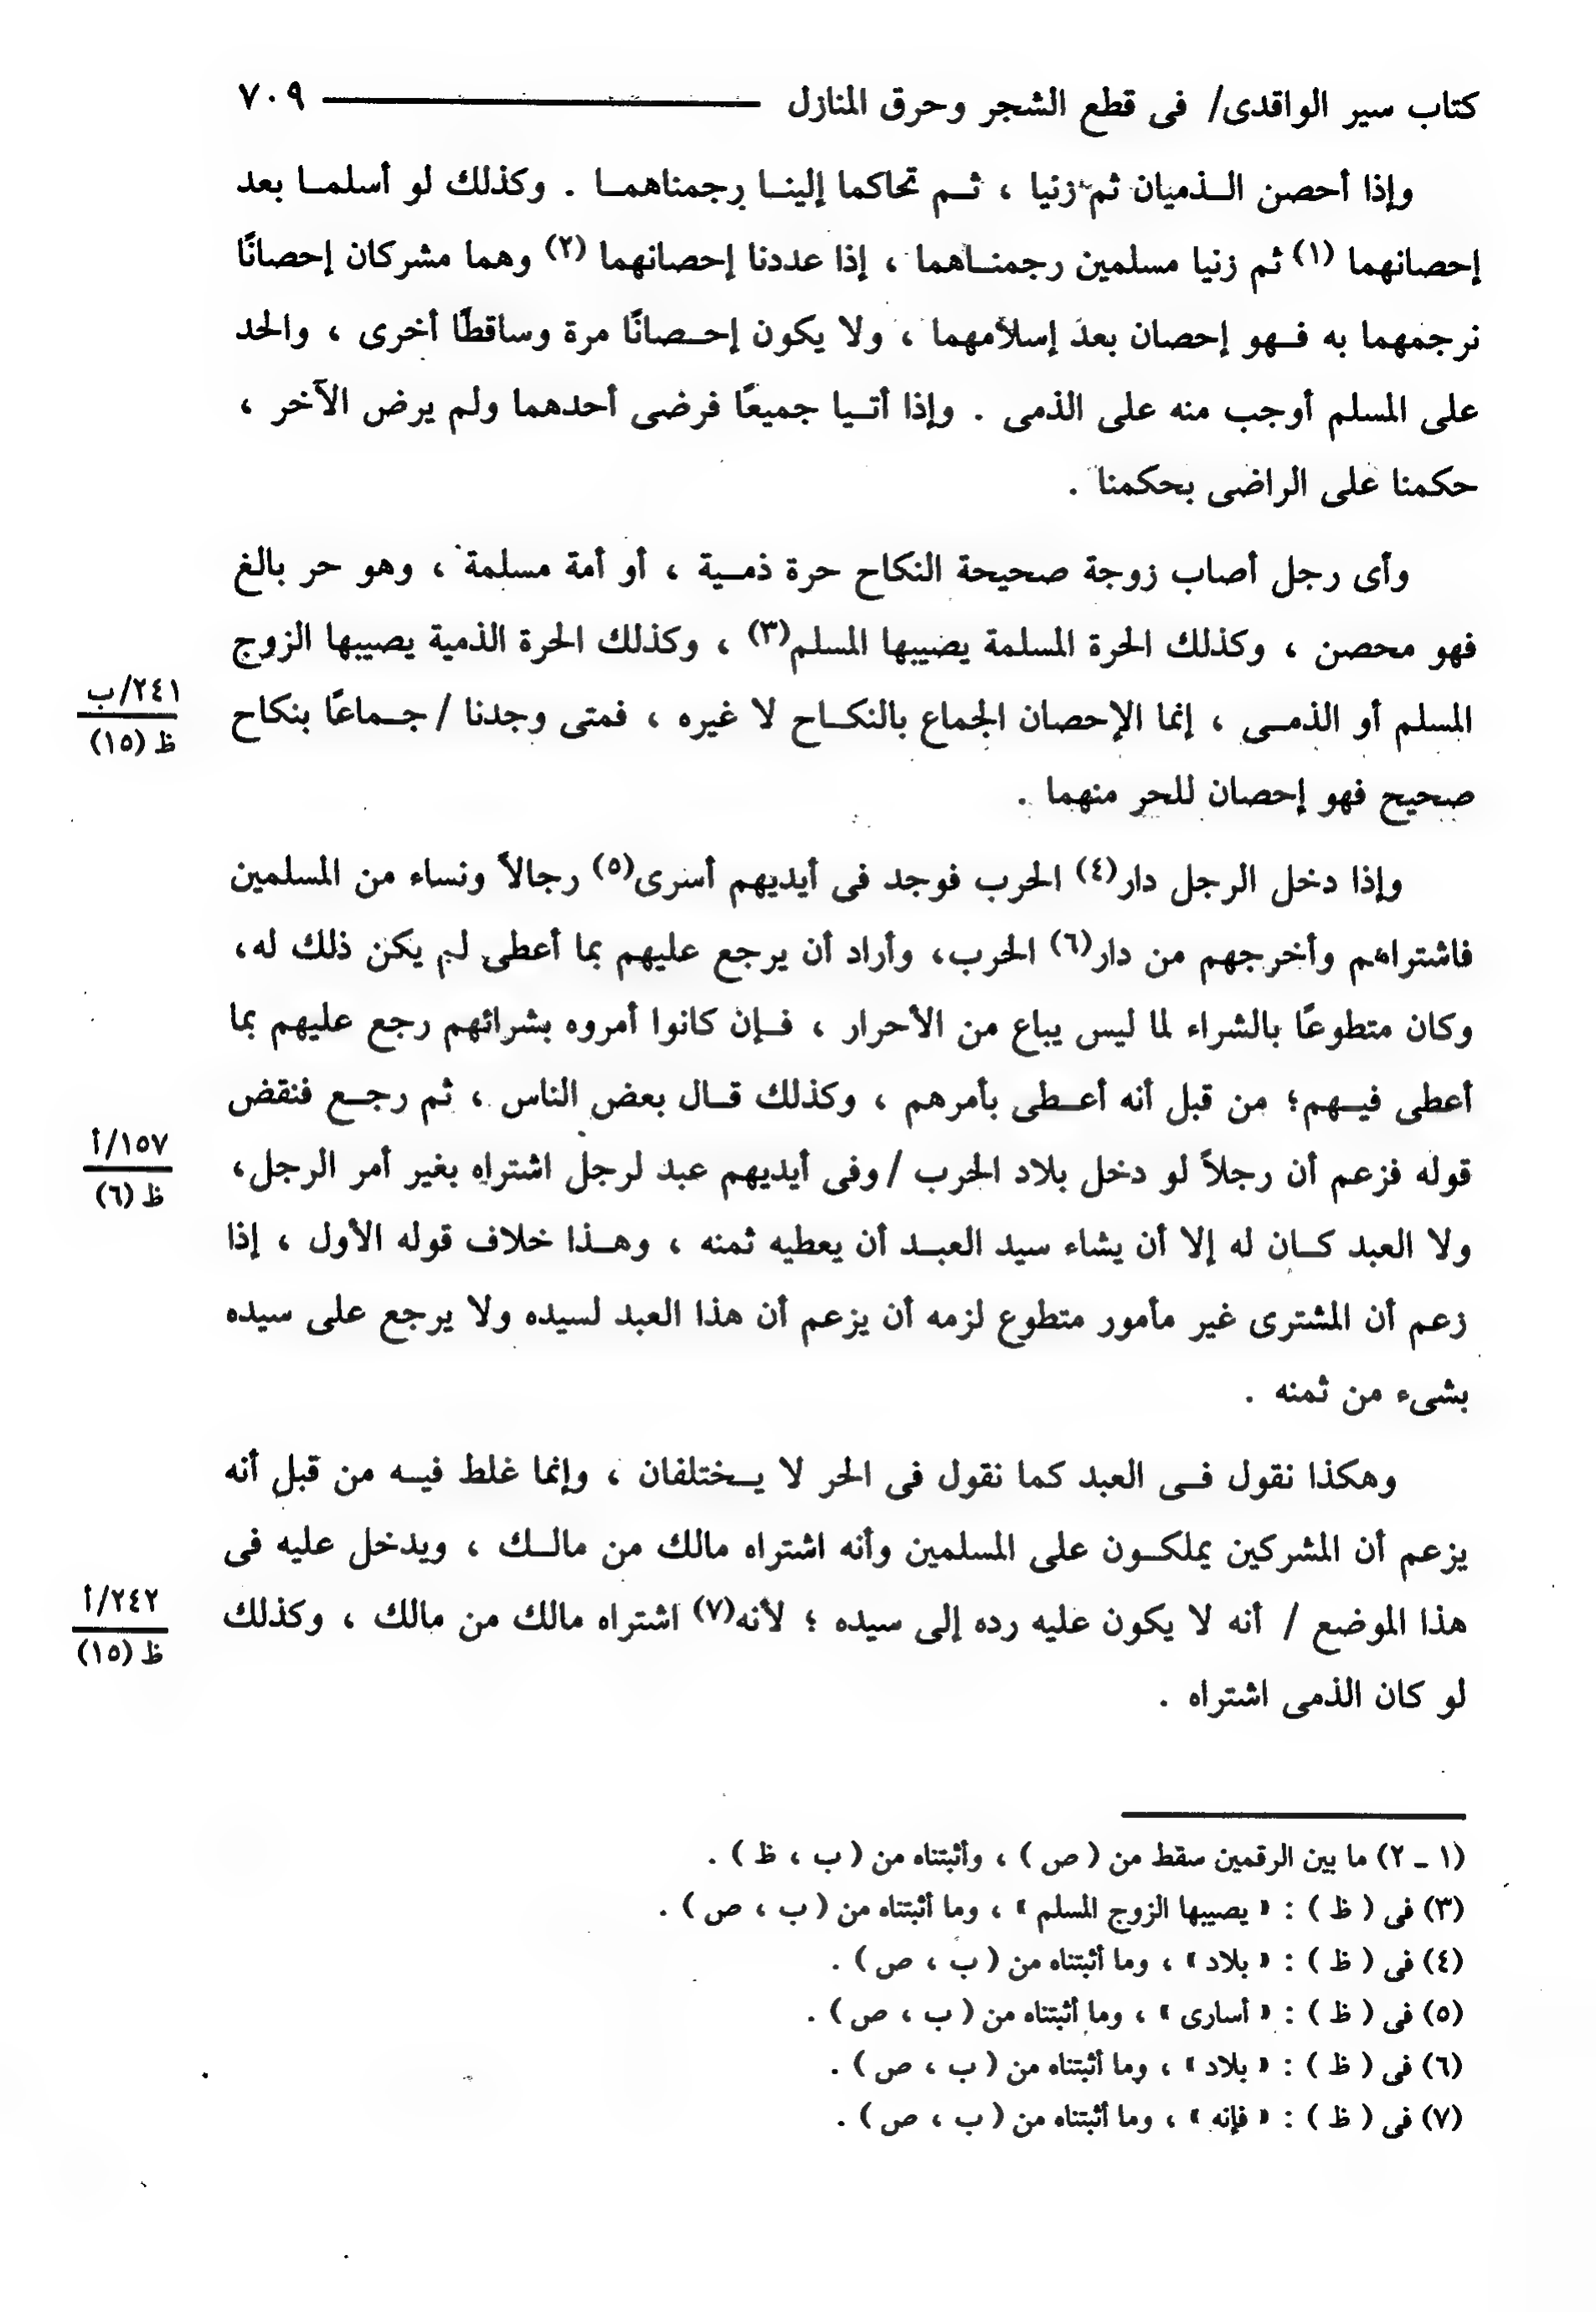 كتاب سير الواقدى/ فى قطع الشجر وحرق المنازل ٧٠٩
وإذا أحصن الذميان ثم زنيا ، ثم تحاكما إلينا رجمناهما . وكذلك لو أسلما بعد
إحصانهما (١) ثم زنيا مسلمين رجمناهما ، إذا عددنا إحصانهما (٢) وهما مشركان إحصانًا
نرجمهما به فهو إحصان بعد إسلامهما ، ولا يكون إحصانًا مرة وساقطًا أخرى ، والحد
على المسلم أوجب منه على الذمى . وإذا أتيا جميعًا فرضى أحدهما ولم يرض الآخر ،
حكمنا على الراضى بحكمنا .
وأى رجل أصاب زوجة صحيحة النكاح حرة ذمية ، أو أمة مسلمة ، وهو حر بالغ
فهو محصن ، وكذلك الحرة المسلمة يصيبها المسلم(٣) ، وكذلك الحرة الذمية يصيبها الزوج
المسلم أو الذمى ، إنما الإحصان الجماع بالنكاح لا غيره ، فمتى وجدنا / جماعًا بنكاح
٢٤١/ب
ظ (١٥)
صحيح فهو إحصان للحر منهما .
وإذا دخل الرجل دار(٤) الحرب فوجد فى أيديهم أسرى(٥) رجالاً ونساء من المسلمين
فاشتراهم وأخرجهم من دار(٦) الحرب، وأراد أن يرجع عليهم بما أعطى لم يكن ذلك له،
وكان متطوعًا بالشراء لما ليس يباع من الأحرار ، فإن كانوا أمروه بشرائهم رجع عليهم بما
أعطى فيهم؛ من قبل أنه أعطى بأمرهم ، وكذلك قال بعض الناس ، ثم رجع فنقض
قوله فزعم أن رجلاً لو دخل بلاد الحرب / وفى أيديهم عبد لرجل اشتراه بغير أمر الرجل،
١٥٧/أ
ظ (٦)
ولا العبد كان له إلا أن يشاء سيد العبد أن يعطيه ثمنه ، وهذا خلاف قوله الأول ، إذا
زعم أن المشترى غير مأمور متطوع لزمه أن يزعم أن هذا العبد لسيده ولا يرجع على سيده
بشىء من ثمنه .
وهكذا نقول فى العبد كما نقول فى الحر لا يختلفان ، وإنما غلط فيه من قبل أنه
يزعم أن المشركين يملكون على المسلمين وأنه اشتراه مالك من مالك ، ويدخل عليه فى
هذا الموضع / أنه لا يكون عليه رده إلى سيده ؛ لأنه(٧) اشتراه مالك من مالك ، وكذلك
٢٤٢/أ
ظ (١٥)
لو كان الذمى اشتراه .
(١ ـ ٢) ما بين الرقمين سقط من ( ص ) ، وأثبتناه من ( ب ، ظ ) .
(٣) فى ( ظ ) : « يصيبها الزوج المسلم » ، وما أثبتناه من ( ب ، ص ) .
(٤) فى ( ظ ) : « بلاد » ، وما أثبتناه من ( ب ، ص ) .
(٥) فى ( ظ ) : « أسارى » ، وما أثبتناه من ( ب ، ص ) .
(٦) فى ( ظ ) : « بلاد » ، وما أثبتناه من ( ب ، ص ) .
(٧) فى ( ظ ) : « فإنه » ، وما أثبتناه من ( ب ، ص ) .